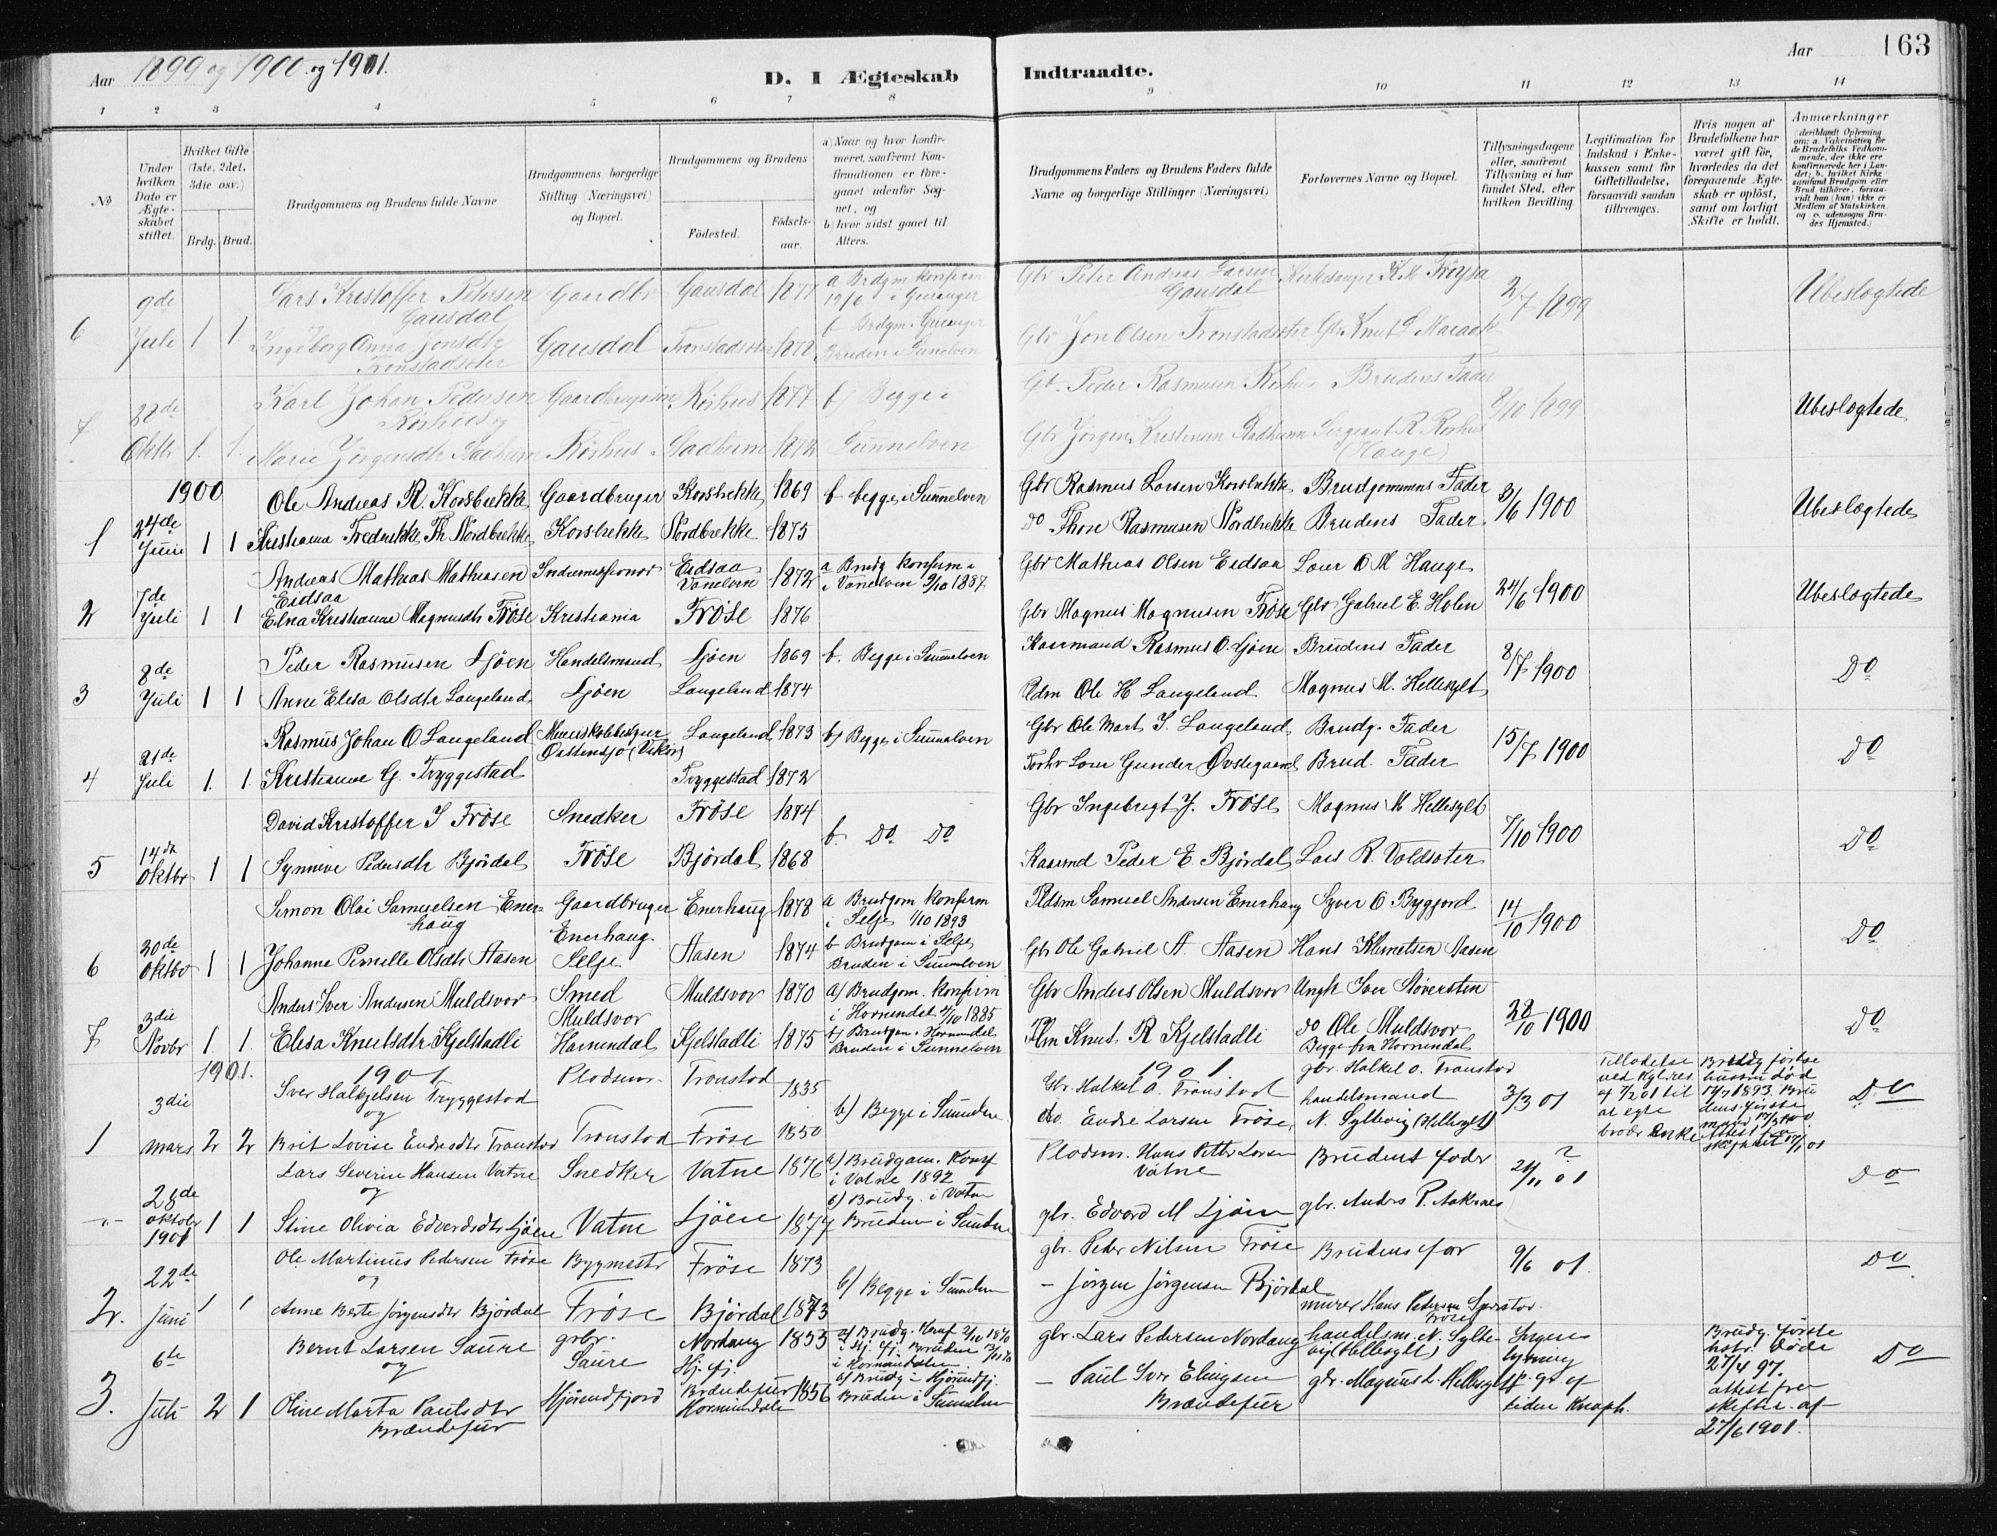 Aar 1899 og 1900 og 1901.
D. I Ægteskab Indtraadte.
Aar 163
1 2 3 4 5 6 7 8 9 10 11 12 13 14
No
Under hvilken Dato er Ægteskabet stiftet.
Hvilket Gifte (1ste, 2det, 3die osv.)
Brdg. Brud.
Brudgommens og Brudens fulde Navne
Brudgommens borgerlige Stilling (Næringsvei) og Bopæl.
Brudgommens og Brudens
Fødested. Fødselsaar.
a) Naar og hvor konfirmeret, saafremt Konfirmationen er foregaaet udenfor Sognet, og
b) hvor sidst gaaet til Alters.
Brudgommens Faders og Brudens Faders fulde Navne og borgerlige Stillinger (Næringsvei)
Forlovernes Navne og Bopæl.
Tillysningsdagene eller, saafremt Tillysning ei har fundet Sted, efter hvilken Bevilling.
Legitimation for Indskud i Enkekassen samt for Giftetilladelse, forsaavidt saadan tiltrænges.
Hvis nogen af Brudefolkene har været gift før, hvorledes da det foregaaende Ægteskab er opløst, samt om lovligt Skifte er holdt.
Anmærkninger
(deriblandt Oplysning om: a. Vakcination for de Brudefolks Vedkommende, der ikke ere konfirmerede her i Landet; b. hvilket Kirkesamfund Brudgom eller Brud tilhører, forsaavidt han (hun) ikke er Medlem af Statskirken, og c. udensogns Brudes Hjemsted.)
6 9de Juli 1 1
Lars Kristoffer Petersen Gausdal Gaardbr Gausdal 1877
a Brdgm konfirm i Geiranger
b Brdgm. Geiranger
Bruden i Sunelven
Ingeborg Anna Jonsdtr Tronstadsæter Gausdal Tronstadsæter 1878
Gbr Peter Andreas Larsen Gausdal Kirkesanger K. M. Frøysa 2/7 1899 Ubeslægtede
Gbr Jon Olsen Tronstadsæter Gbr Knut L Maraak
7 28de Oktbr 1. 1.
Karl Johan Pedersen Røshus og Gaardbrugersøn Røshus 1877 b) Begge i
Marie Jørgensdtr Stadheim Røshus Stadheim 1872 Sunnelven
Gbr. Peder Rasmusen Røshus Brudens Fader 8/10 1899 Ubeslægtede
Gbr Jørgen Kristensen Stadheim Sergeant R. Røshus (Hauge)
1900
1 24de Juni 1 1
Ole Andreas R. Korsbrekke Gaardbruger Korsbrekke 1869 b begge i Sunnelven
Kristianna Fredrikke Th Nordbrekke Korsbrekke Nordbrekke 1875
Gbr Rasmus Larsen Korsbrekke Brudgommens Fader 3/6 1900 Ubeslægtede
do Thore Rasmusen Nordbrekke Brudens Fader
2 7de Juli 1 1
Andreas Mathias Mathiasen Eidsaa Indremissionær Eidsaa Vanelven 1872
a Brudg konfirm i
i Vanelven 9/10 1887.
Elna Kristianne Magnusdtr Frøse Kristiania Frøse 1876
Gbr Mathias Olsen Eidsaa Lærer O M Hauge 24/6 1900 Ubeslægtede
Gbr Magnus Magnusen Frøse Gbr Gabriel E. Holen
3 8de Juli 1 1
Peder Rasmusen Ljøen Handelsmand Ljøen 1869 b. Begge i Sunnelven
Anne Elisa Olsdtr Langeland Ljøen Langeland 1874
Kaarmand Rasmus O. Ljøen Brudens Fader 8/7 1900 Do
Pldm Ole H Langeland Magnus M. Hellesylt
4 21de Juli 1. 1.
Rasmus Johan O. Langeland Østensjø (Vikør) Langeland 1873 b) Begge i Sunnelven
Kristianne G. Tryggestad Tryggestad 1872
Gbr Ole Mart. I. Langeland Brudg. Fader 15/7 1900 Do
Forhv Lærer Gunder Øvstegaard Brud. Fader
5 14de Oktbr 1 1
David Kristoffer I Frøse Snedker Frøse 1874 b. Do Do
Synneve Pedersdtr Bjørdal Frøse Bjørdal 1868
Gbr Ingebrigt J. Frøse Magnus M Hellesylt 7/10 1900 Do
Kaarmd Peder E. Bjørdal Lars R. Voldsæter
6 20de Oktbr 1 1
Simon Olai Samuelsen Enerhaug Gaardbruger Enerhaug 1878
a Brudgom konfirm
i Selje 1/10 1893
b Brudgom i Selje
Bruden i Sunnelven
Johanne Pernille Olsdtr Aasen Enerhaug. Selje Aasen 1874
Pldsm Samuel Andersen Enerhaug Syver O Bygjord 14/10 1900 Do
Gbr Ole Gabriel A. Aasen Hans Klemetsen Aasen
7 3die Novbr 1. 1.
Anders Iver Andersen Muldsvor Smed Muldsvor Muldsvor 1870
a) Brudgom. konfirm
i Hornindal 4/10 1885
b) Brudgom. Hornindal
Bruden i Sunnelven
Elisa Knutsdtr Kjelstadli Hornindal Kjelstadli 1875
Gbr Anders Olsen Muldsvor Ungk Iver Støversten 28/10 1900 Do
Plm Knut R Kjelstadli do Ole Muldsvor
Begge fra Hornindal
1901. 1901 1901
1 3die mars 2 2
Iver Halkjelsen Tryggestad og Pladsm. Tronstad 1835 b) Begge i Sunnelven
Brit Lovise Endresdtr Tronstad Tronstad Frøse 1850
Gbr. Halkel O. Tronstad gbr. Halkel O. Tronstad 3/3 01 Do
do. Endre Larsen Frøse, handelsmand N. Syltevig (Hellesylt)
Tilladelse ved Kgl. res. af 7/2 01 til at egte broders Enke
Brudg. første hustru død 1893. Brudens første mand
-"- 28de oktober 1901 1 1
Lars Severin Hansen Vatne og Snedker Vatne 1876
a) Brudgom. Konf
i Vatne 1892
b) Brudg. i Vatne
Bruden i Sunnelven
Stine Olivia Edvardsdtr Ljøen Vatne Ljøen 1877
Pladsm. Hans Petter Larsen Vatne Brudens fader ? 24/11 01 Do
gbr. Edvard M Ljøen gbr. Anders P. Aaknes
2. 22de Juni 1 1
Ole Martinus Pedersen Frøse og Bygmestr Frøse 1873 b) Begge i Sunnelven
Anne Berte Jørgensdtr Bjørdal Frøse Bjørdal 1873
gbr. Peder Nilsen Frøse Brudens far 9/6 01 Do
- Jørgen Jørgensen Bjørdal murer Hans Pedersen Frøse
3. 6te Juli 2 1
Bernt Larsen Saure og grbr. Saure Nordang Hj.fj. 1853
Oline Marta Paulsdtr Brændefur Hjørundfjord Brændefur Hornindalen 1856
b) Brudg i Hjørundfj.
Bruden i Sunnelven
gbr. Lars Pedersen Nordang handelsm. N. Syltevig (Hellesylt) Ingen lysning
- Paul Iver Elingsen Brændefur gbr. Magnus M. Hellesylt
Brudg. første hstr. døde 27/4 97. attest fra skifter. af 27/6 1901.
Do